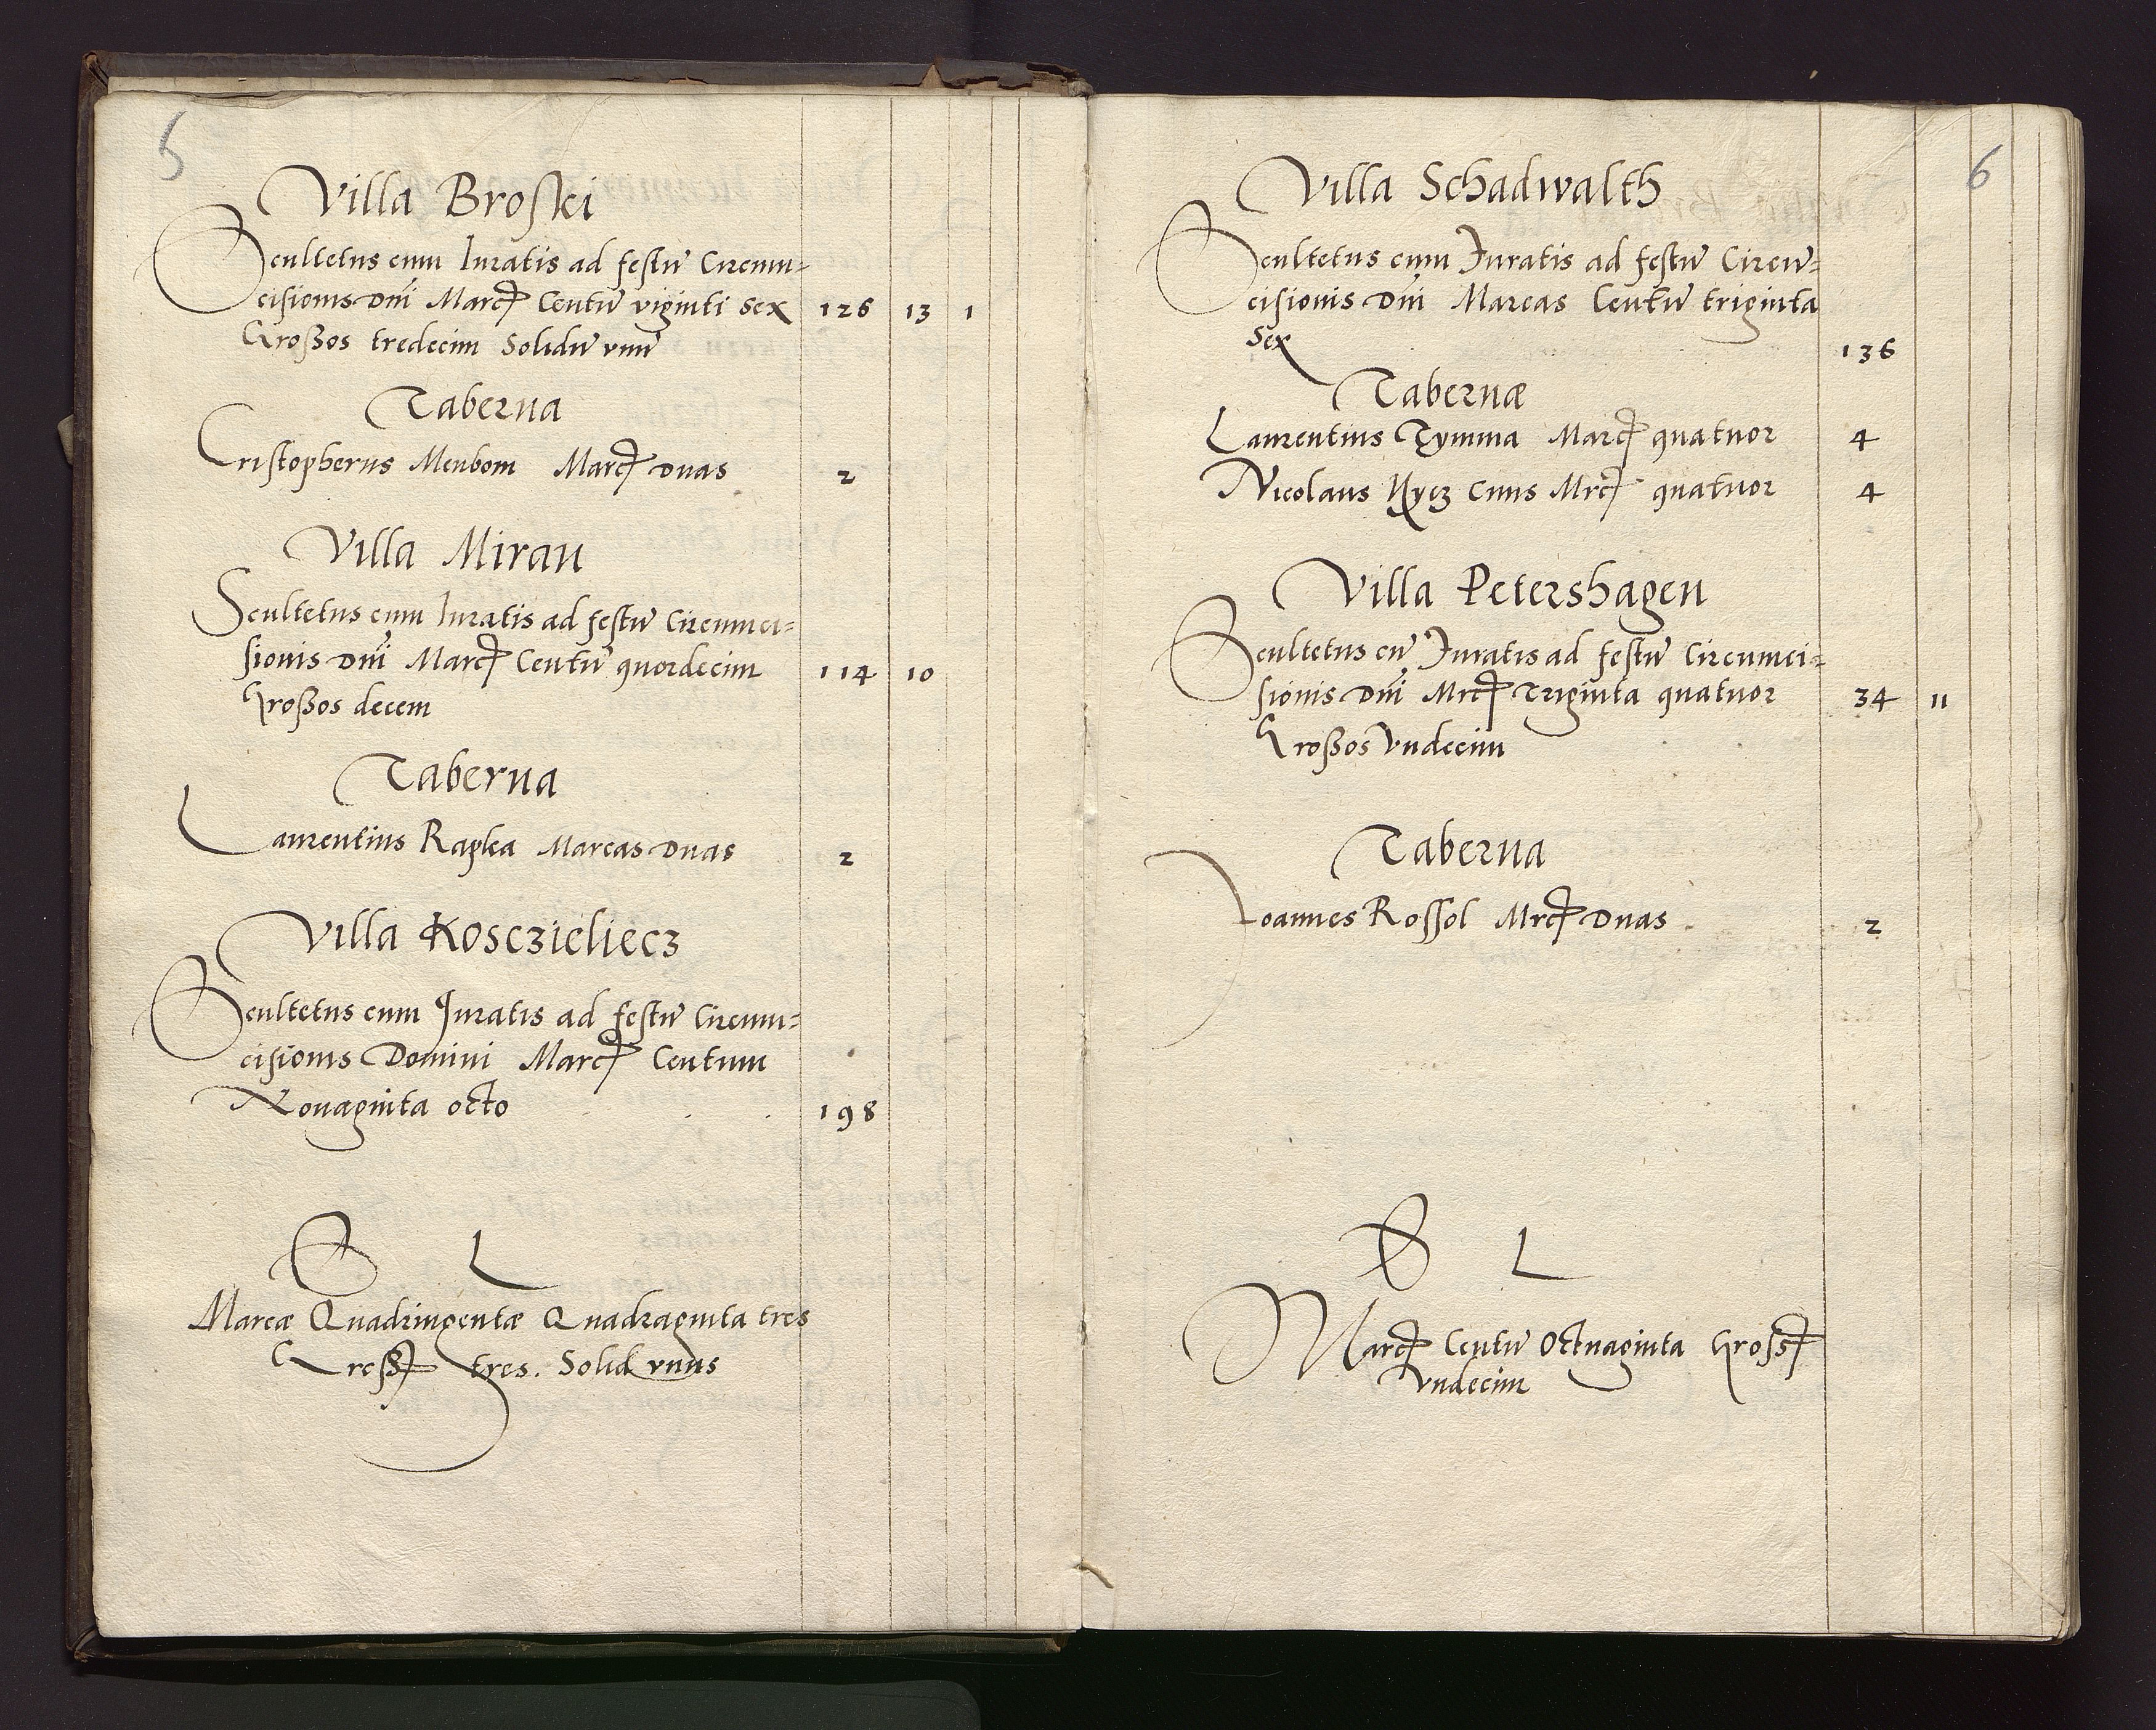 5
Villa Broski
Scultetus cum Iuratis ad festū Circum-
cisionis Dnī Marcꝭ Centū viginti Sex 126 13 1
Großos tredecim Solidū vnū
Taberna
Cristopherus Menbom Marcꝭ Duas 2
Villa Mirau
Scultetus cum Iuratis ad festū Circumci-
sionis Dnī Marcꝭ Centū quordecim 114 10
Großos decem
Taberna
Laurentius Rapka Marcas Duas 2
Villa Kosczieliecz
Scultetus cum Juratis ad festū Circum-
cisionis Domini Marcꝭ Centum
Nonaginta octo 198
S L
Marcæ Quadringentæ Quadraginta tres
Großꝭ tres. Solid vnus
6
Villa Schadwalth
Scultetus cum Juratis ad festū Circū-
cisionis Dnī Marcas Centū triginta
Sex 136
Tabernæ
Laurentius Tymma Marcꝭ quatuor 4
Nicolaus Mrcꝭ quatuor 4
Villa Petershagen
Scultetus cū Juratis ad festū Circumci-
sionis Dnī Mrcꝭ Triginta quatuor 34 11
Großos Vndecim
Taberna
Joannes Rossol Mrcꝭ Duas 2
S L
Marcꝭ Centū Octuaginta Grossꝭ
vndecim